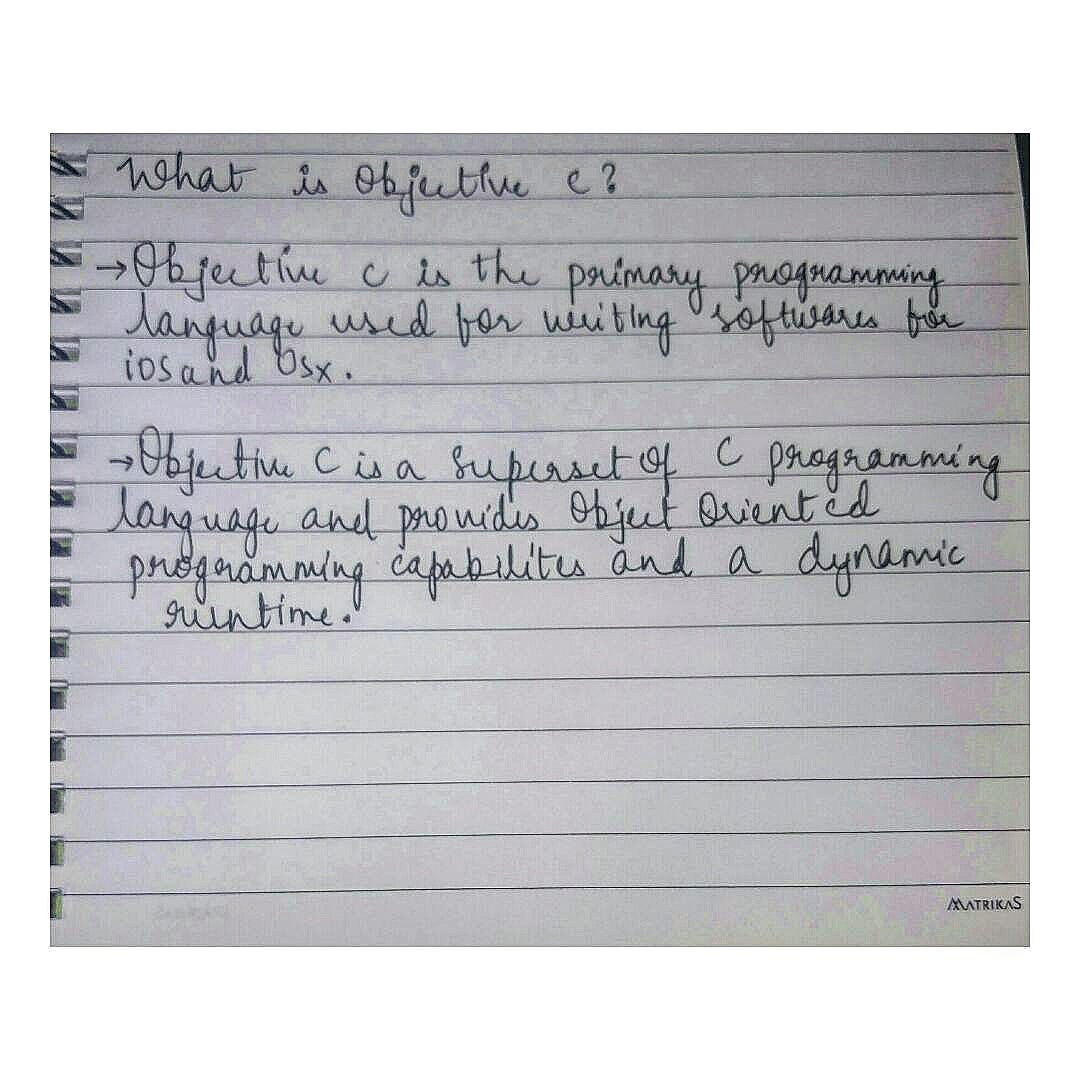 What is Objective c?
→Objective c is the primary programming
language used for writing softwares for
ios and Osx.
→Objective C is a Superset Of C programming
language and provides Object Oriented
programming capabilites and a dynamic
runtime.
MATRIKAS